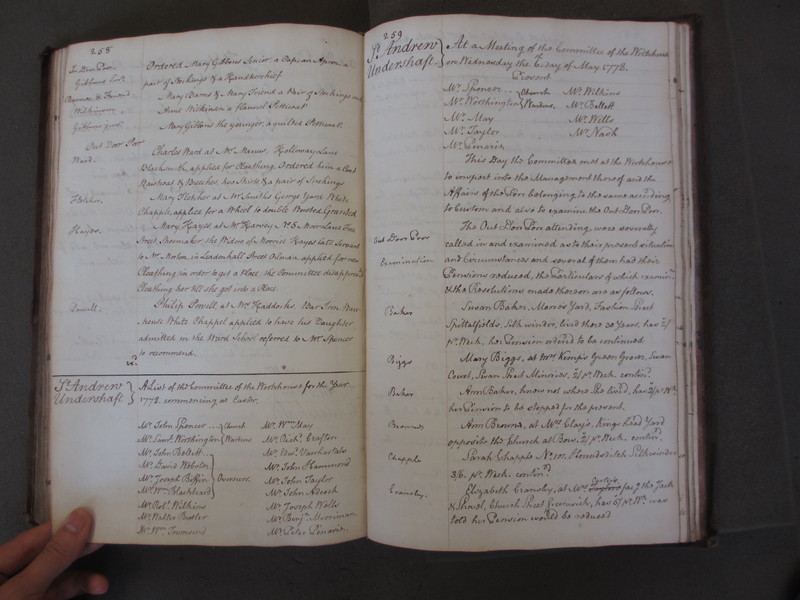 258
In Door Poor
Gibbons Senr.
Barns & Friend
Wilkinson
Gibbons junr.
Ordered Mary Gibbons Senior, a Cap, an Apron, a
pair of Stockings & a Handkerchief
Mary Barns & Mary Friend a Pair of Stockings and
Anne Wilkinson a Flannel Petticoat
Mary Gibbons the younger, a quilted Petticoat
Out Door Poor
Ward.
Charles Ward at Mr. Holloway Lane
applied for Cloathing, Ordered him a Coat
Waistcoat & Breeches, two Shirts & a pair of Stockings
Fletcher.
Mary Fletcher at Mr. Smiths Georges Yard White
Chapple, applied for a Wheel to double Worsted, Granted
Hayes.
Mary Hayes at Mr. Harvey No. 5 Lane Fore
Street Shoemaker, the Widow of Morris Hayes late Servant
to Mr. in Leadenhall Street Oilman, applied for new
Cloathing in order to get a Place, the Committee disapprov'd
Cloathing her till she got into a Place.
Powell.
Philip Powell at Mr. Haddocks, Bar Iron Ware
house White Chappel applied to have his Daughter
admitted in the Ward School referred to Mr. Spencer
to recommend.
St. Andrew
Undershaft
A List of the Committee of the Workhouse for the Year
1772 commencing at Easter.
Mr. John Spencer
Mr. Saml. Worthington
Church
Wardens
Mr. John Bellett
Mr. David Webster
Mr. Joseph Boffin
Mr. Wm. Blackbeard
Overseers
Mr. Robt. Wilkins
Mr. Walter Butler
Mr. Wm. Townsend
Mr. Wm. May
Mr. Richd. Crafton
Mr. Edwd. Vauxhartals
Mr. John Hammond
Mr. John Taylor
Mr. John
Mr. Joseph Wells
Mr. Benjn. Merriman
Mr. Peter
259
St. Andrew
Undershaft
At a Meeting of the Committee of the Workhouse
on Wednesday the 6th day of May 1772.
Present
Mr. Spencer
Mr. Worthington
Church
Wardens
Mr. May
Mr. Taylor
Mr.
Mr. Wilkins
Mr. Bellett
Mr. Wells
Mr. Nash
This Day the Committee met at the Workhouse
to inspect into the Management thereof and the
Affairs of the Poor belonging to the same according
to Custom and also to examine the Out Door Poor.
Out Door Poor
Examination
The Out Door Poor attending, were severally
called in and examined as to their present situation
and Circumstances and several of them had their
Pensions reduced, the Particulars of which examinn.
& the Resolutions made thereon are as follows.
Baker
Susan Baker, Yard, Fashion Street
Spittalfields, Silk winder, lived there 20 Years, has 2/
pr. Week, her Pension ordered to be continued
Biggs
Mary Biggs, at Mrs. Kemps Green Grocer, Swan
Court, Swan Street Minories, 2/ pr. Week. contind.
Baker
Ann Baker, know not where she lived, has 2/ pr. Wk.
her Pension to be stopped for the present.
Browne
Ann Browne, at Mrs. Clays, Kings head Yard
opposite the Church at Bow, 2/ pr. Week. contind.
Chapple
Sarah Chapple No. 107, Houndsditch Silkwinder
3/6. pr. Week. contind.
Cransley.
Elizabeth Cransley, at Mrs. facg. the Jack
& Shovel, Church Street Greenwich, has 5/ pr. Wk. was
told her Pension would be reduced